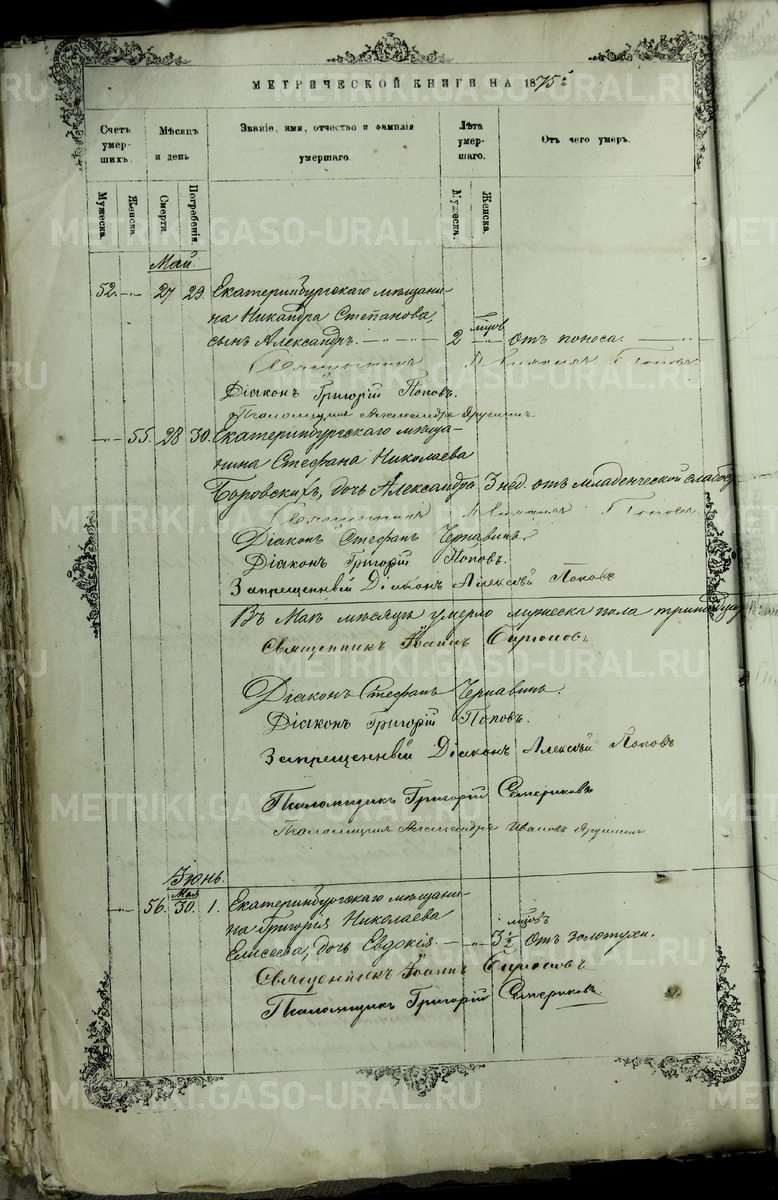 МЕТРИЧЕСКОЙ КНИГИ НА 1875 г.
Счетъ умер- шихъ.
Мѣсяцъ и день
Званіе, имя, отчество и фамилія умершаго.
Лѣта умер- шаго.
Отъ чего умеръ.
Мужеска.
Женска.
Смерти.
Погребенія.
Мужеска.
Женска.
Май.
52. 27 29. Екатеринбургскаго мѣщани-
на Никандра Степанова,
сынъ Александръ. 2 мѣсяц. отъ поноса.
Священникъ Попов
Діаконъ Григорій Поповъ.
Псаломщикъ Александръ
55. 28 30. Екатеринбургскаго мѣща-
нина Стефана Николаева
Боровскихъ, дочь Александра 3 нед. отъ младенческой слабос.
Священникъ Попов
Діаконъ Стефанъ Чернавинъ.
Діаконъ Григорій Поповъ.
Запрещенный Діаконъ Алексѣй Поповъ
Въ Маѣ мѣсяцѣ умерло мужеска пола тринадца
Священникъ Іоаннъ
Діаконъ Стефанъ Чернавинъ.
Діаконъ Григорій Поповъ.
Запрещенный Діаконъ Алексѣй Поповъ
Псаломщикъ Григорій Семериковъ
Псаломщикъ Александръ Ивановъ
Іюнь.
Мая
56. 30. 1. Екатеринбургскаго мѣщани-
на Григорія Николаева
Елисеева, дочь Евдокія. 3½ мѣсяц. отъ золотухи.
Священникъ Іоаннъ
Псаломщикъ Григорій Семериковъ
METRIKI.GASO-URAL.RU